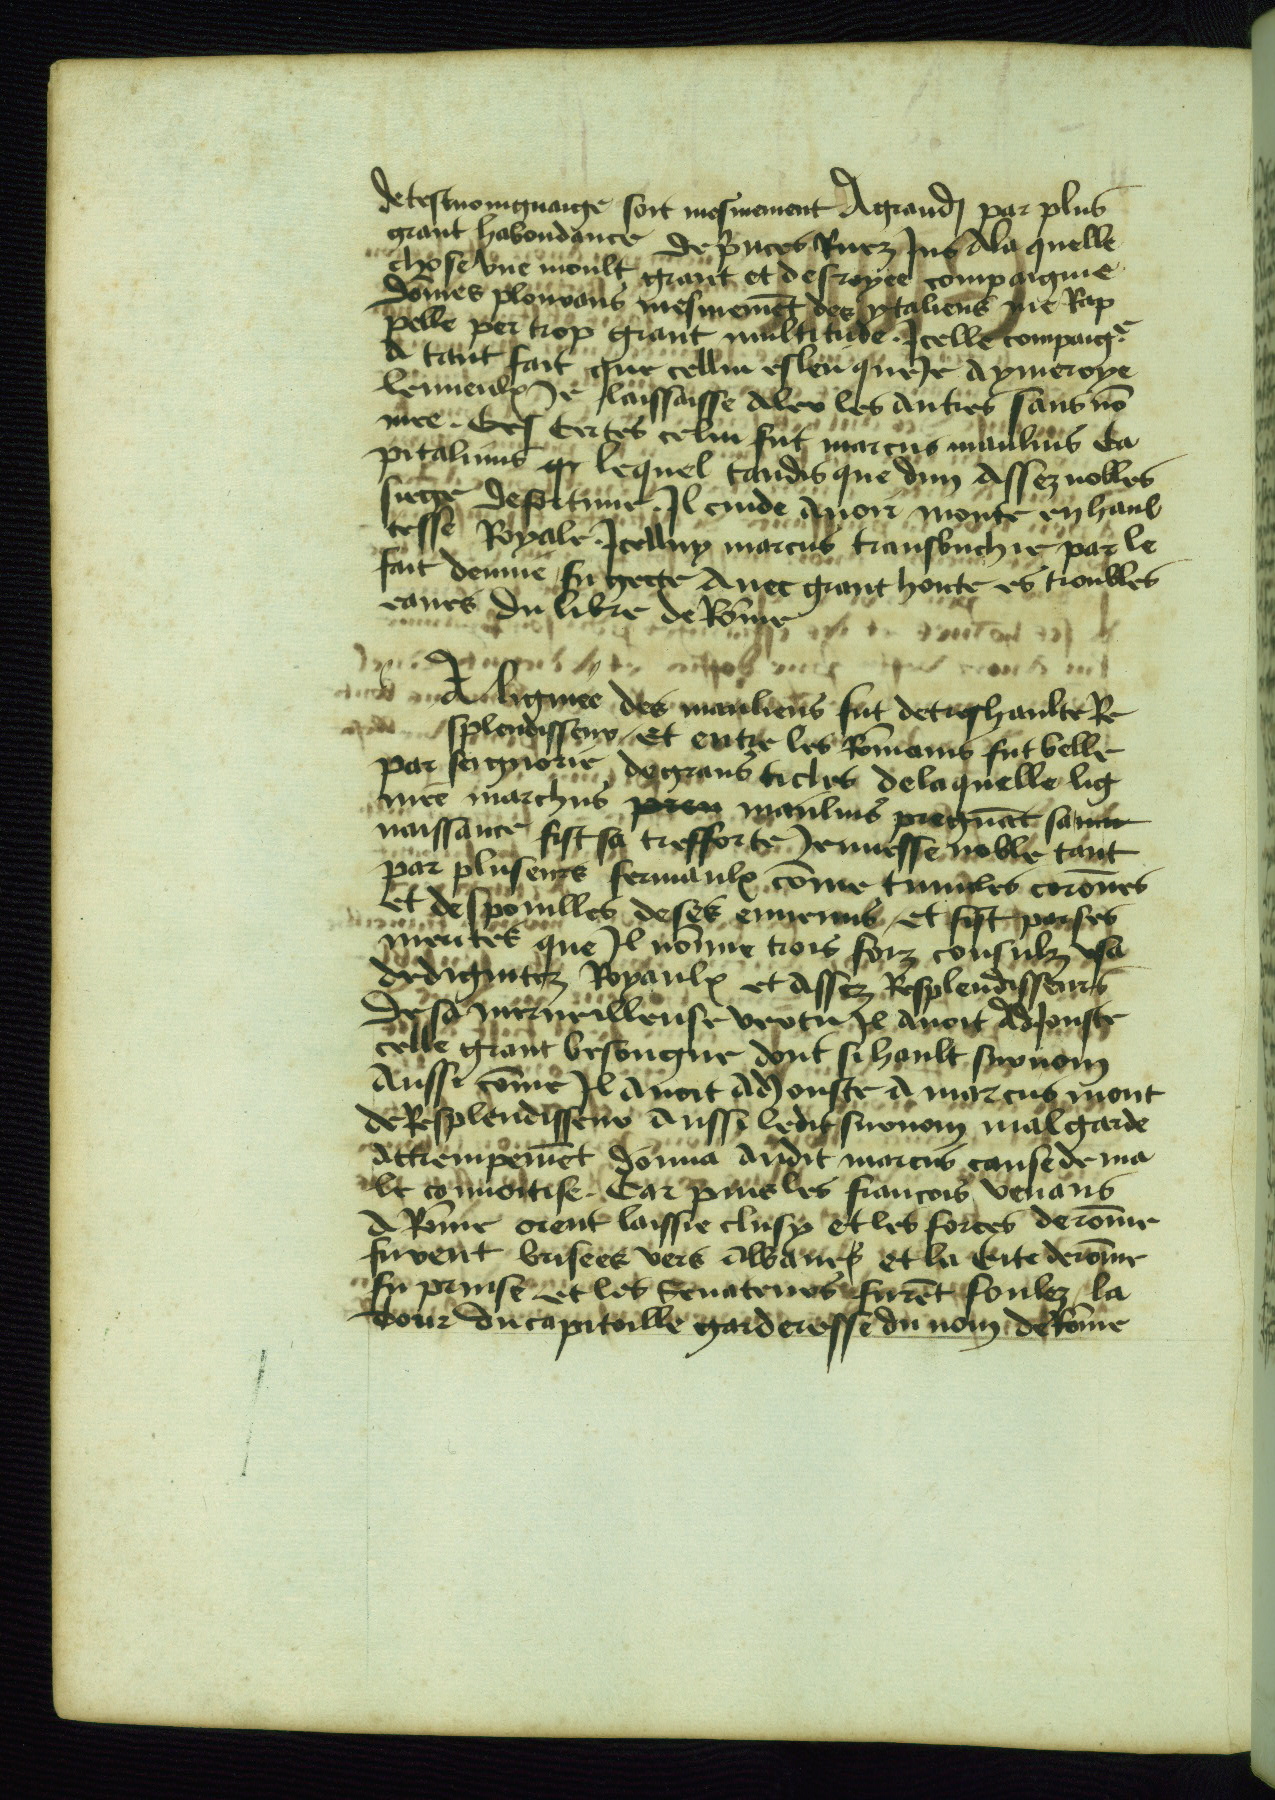 de tesmoingnaige soit mesmement Agrandj par plus
grant habondance de p̃nces Ruez Jus Ala quelle
chose vne moult grant et desroyee compaignie
dom̃es plourans mesmemẽt des ytaliens me Rap
pelle per trop grant multitude. Jcelle compaigᵉ
A tant fait que cellui esleu que Je Aymeroye
le mieulx Je laissaisse Aler les Autres sans nõ
mee. Certes celui fut marcus manlius Ca
pitalinus lequel tandis que dun Assez nobles
siege de fortune. Jl cuide Auoir monte en haul
tesse Royale. Jcelluy marcus transbuchie par le
fait denuie fu gecte Auec grant honte es troubles
eaues du libre de Rõme
A ligniee des manliens fut de treshaulte Re
splendisseur et entre les Rõmains fut belle
par seignorie de grans ticles de la quelle lig
niee marchus manlius pregnãt sa
naissance fist sa tresforte Jennesse noble tant
par pluseurs fermaulx cõme tumbes corõnes
et despouilles de ses ennemis et fist par ses
merites que Jl nõmme trois foiz consulz vsa
de dignitez Royaulx et Assez Resplendisseurs
De sa merueilleuse vertu Jl Auoit AdJouste
celle grant besongne dont si hault surnom
Aussi cõme Jl Auoit AdJouste A marcus mont
de Resplendisseur Aussi ledit surnom mal garde
Attrempemẽt donna Audit marcus cause de ma
le conuoitise. Car puis les francois venans
A Rõme orent laissie clusy et les forces de rõme
furent brisees vers et la Cite de rõme
fu prinse et les Senateurs furẽt foulez la
tour du capitoille garderesse du nom de Rõme